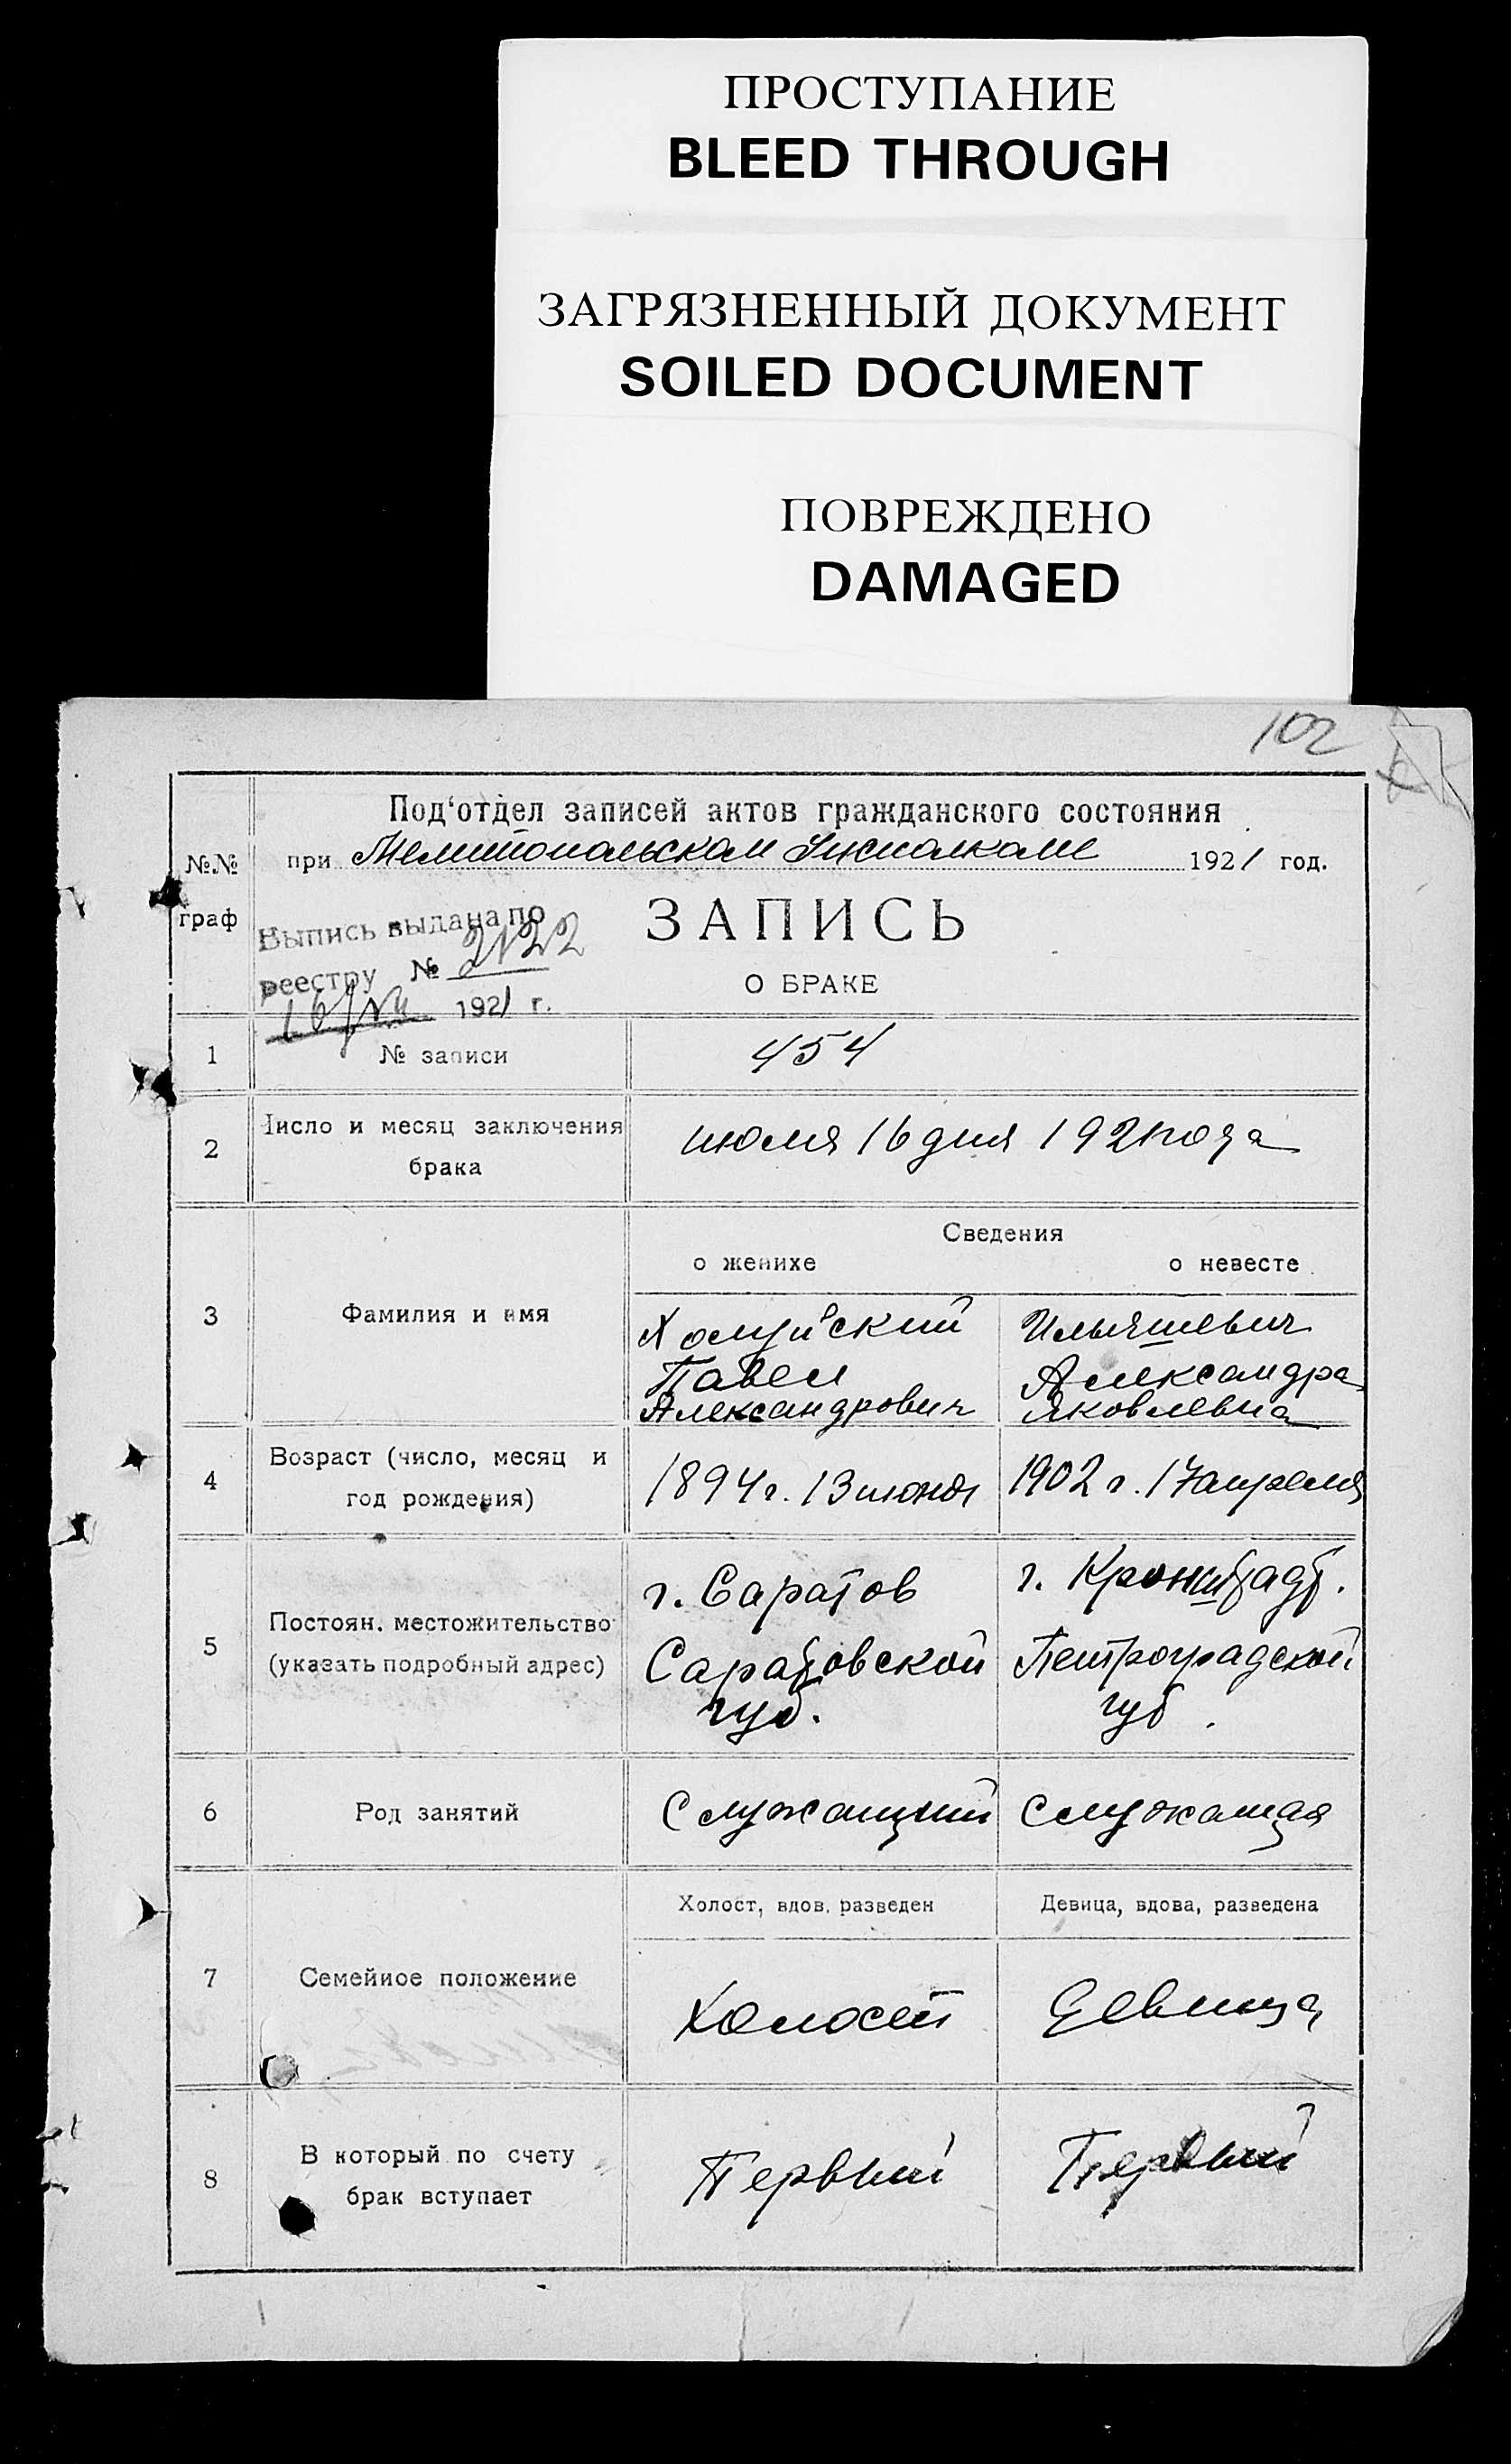 ПРОСТУПАНИЕ
BLEED THROUGH
ЗАГРЯЗНЕННЫЙ ДОКУМЕНТ
SOILED DOCUMENT
ПОВРЕЖДЕНО
DAMAGED
102
Под'отдел записей актов гражданского состояния
№№ при Мелитопольском 1921 год.
граф
ЗАПИСЬ
Выпись выдана по
реестру № 2122
1921 г.
О БРАКЕ
1 № записи 454
2 Число и месяц заключения
брака
июля 16 дня 1921 года
Сведения
о женихе о невесте
3 Фамилия и имя
Ильяшевич
Павел Александра
Александрович Яковлевна
4 Возраст (число, месяц и
год рождения)
1894 г. 13 июня 1902 г. 17 апреля
5 Постоян. местожительство
(указать подробный адрес)
г. Саратов г. Кронштадт.
Саратовской Петроградской
губ. губ.
6 Род занятий Служащий Служащая
Холост, вдов, разведен Девица, вдова, разведена
7 Семейное положение
Холост Девица
8 В который по счету
брак вступает
Первый Первый